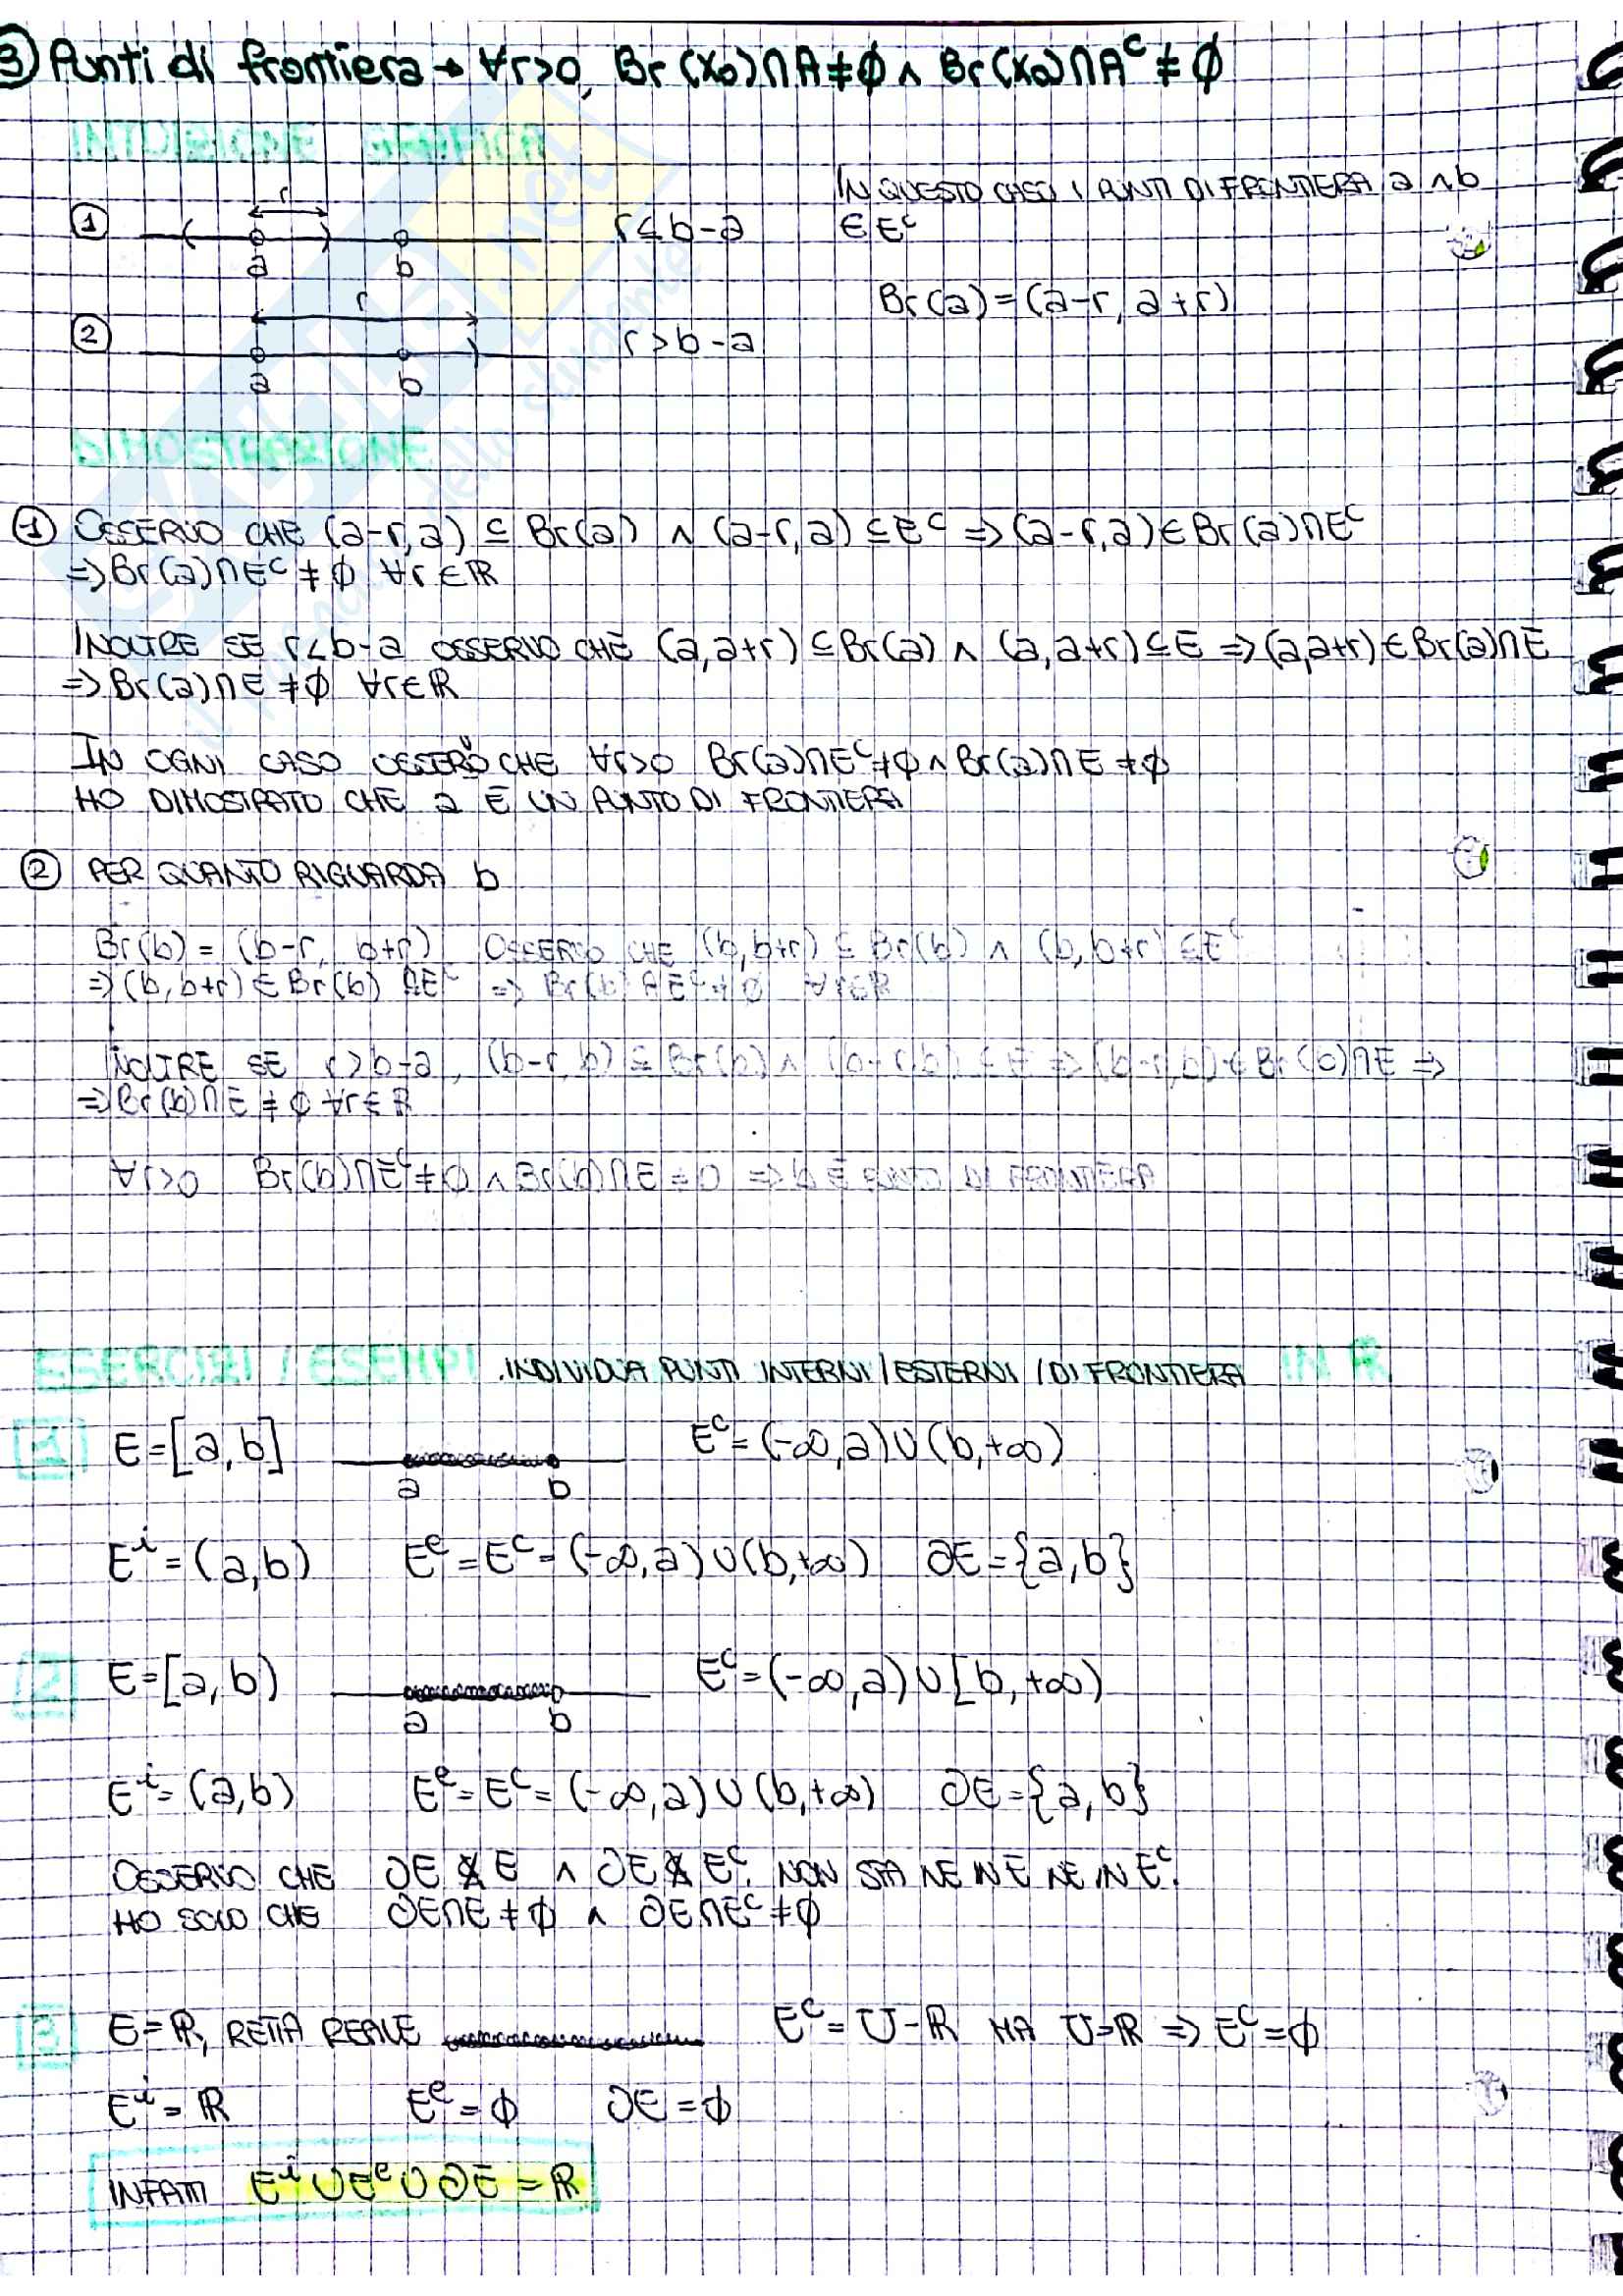 ③ Punti di frontiera → ∀r>0, Br(x₀)∩A≠∅ ∧ Br(x₀)∩Aᶜ≠∅
INTUIZIONE GRAFICA
IN QUESTO CASO I PUNTI DI FRONTIERA a ∧ b
① r a b r≤b-a ∈ Eᶜ
Br(a)=(a-r, a+r)
② r a b r>b-a
DIMOSTRAZIONE
① OSSERVO CHE (a-r,a) ⊆ Br(a) ∧ (a-r,a) ⊆ Eᶜ ⇒ (a-r,a) ∈ Br(a)∩Eᶜ
⇒ Br(a)∩Eᶜ ≠ ∅ ∀r∈ℝ
INOLTRE SE r<b-a OSSERVO CHE (a,a+r) ⊆ Br(a) ∧ (a,a+r) ⊆ E ⇒ (a,a+r) ∈ Br(a)∩E
⇒ Br(a)∩E ≠ ∅ ∀r∈ℝ
IN OGNI CASO OSSERVO CHE ∀r>0 Br(a)∩Eᶜ≠∅ ∧ Br(a)∩E ≠∅
HO DIMOSTRATO CHE a È UN PUNTO DI FRONTIERA
② PER QUANTO RIGUARDA b
Br(b) = (b-r, b+r) OSSERVO CHE (b,b+r) ⊆ Br(b) ∧ (b,b+r) ⊆ Eᶜ
⇒ (b,b+r) ∈ Br(b) ∩Eᶜ ⇒ Br(b)∩Eᶜ≠∅ ∀r∈ℝ
INOLTRE SE r>b-a, (b-r,b) ⊆ Br(b) ∧ (b-r,b) ⊆ E ⇒ (b-r,b) ∈ Br(b)∩E ⇒
⇒ Br(b)∩E ≠ ∅ ∀r∈ℝ
∀r>0 Br(b)∩Eᶜ≠∅ ∧ Br(b)∩E≠∅ ⇒ b È PUNTO DI FRONTIERA
ESERCIZI / ESEMPI . INDIVIDUA PUNTI INTERNI / ESTERNI / DI FRONTIERA IN ℝ
1 E=[a,b] a b Eᶜ=(-∞,a)∪(b,+∞)
Eⁱ=(a,b) Eᵉ=Eᶜ=(-∞,a)∪(b,+∞) ∂E={a,b}
2 E=[a,b) a b Eᶜ=(-∞,a)∪[b,+∞)
Eⁱ=(a,b) Eᵉ=Eᶜ=(-∞,a)∪(b,+∞) ∂E={a,b}
OSSERVO CHE ∂E ⊄ E ∧ ∂E ⊄ Eᶜ. NON STA NE IN E NE IN Eᶜ.
HO SOLO CHE ∂E∩E≠∅ ∧ ∂E∩Eᶜ≠∅
3 E=ℝ, RETTA REALE Eᶜ=U-ℝ MA U=ℝ ⇒ Eᶜ=∅
Eⁱ=ℝ Eᵉ=∅ ∂E=∅
INFATTI Eⁱ∪Eᵉ∪∂E=ℝ